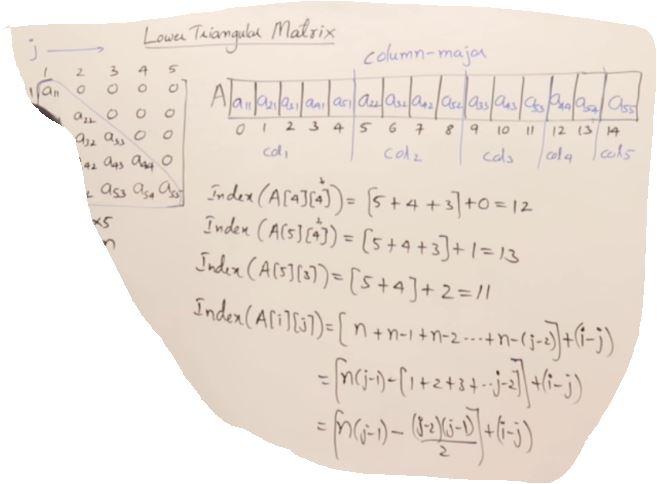 Lower Triangular Matrix
j →
1 2 3 4 5
1 a11 0 0 0 0
a22 0 0 0
a32 a33 0 0
42 a43 a44 0
2 a53 a54 a55
x5
n
column-major
A a11 a21 a31 a41 a51 a22 a32 a42 a52 a33 a43 a53 a44 a54 a55
0 1 2 3 4 5 6 7 8 9 10 11 12 13 14
col1 col2 col3 col4 col5
Index(A[4][4]) = [5+4+3]+0=12
Index(A[5][4]) = [5+4+3]+1=13
Index(A[5][3]) = [5+4]+2=11
Index(A[i][j]) = [n+n-1+n-2---+n-(j-2)]+(i-j)
= [n(j-1)-[1+2+3+--j-2]]+(i-j)
= [n(j-1) - (j-2)(j-1)/2]+(i-j)